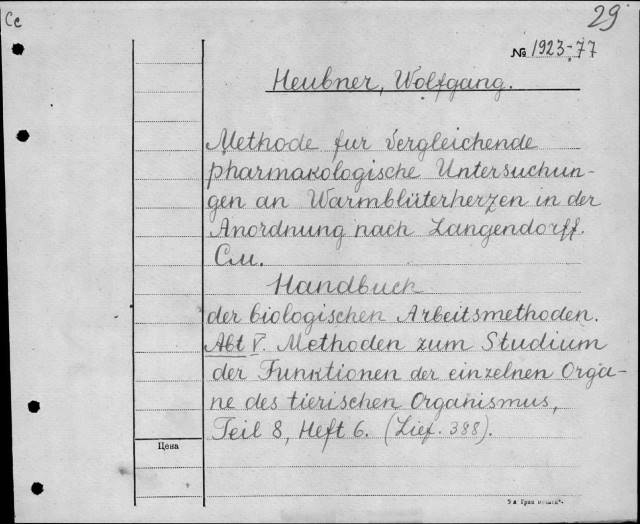 Cc
29
№ 1923-77
Heubner, Wolfgang.
Methode fur vergleichende
pharmakologische Untersuchun-
gen an Warmblüterherzen in der
Anordnung nach Langendorff.
См.
Handbuch
der biologischen Arbeitsmethoden.
Abt V. Methoden zum Studium
der Funktionen der einzelnen Orga-
ne des tierischen Organismus,
Teil 8, Heft 6. (Lief. 388).
Цена